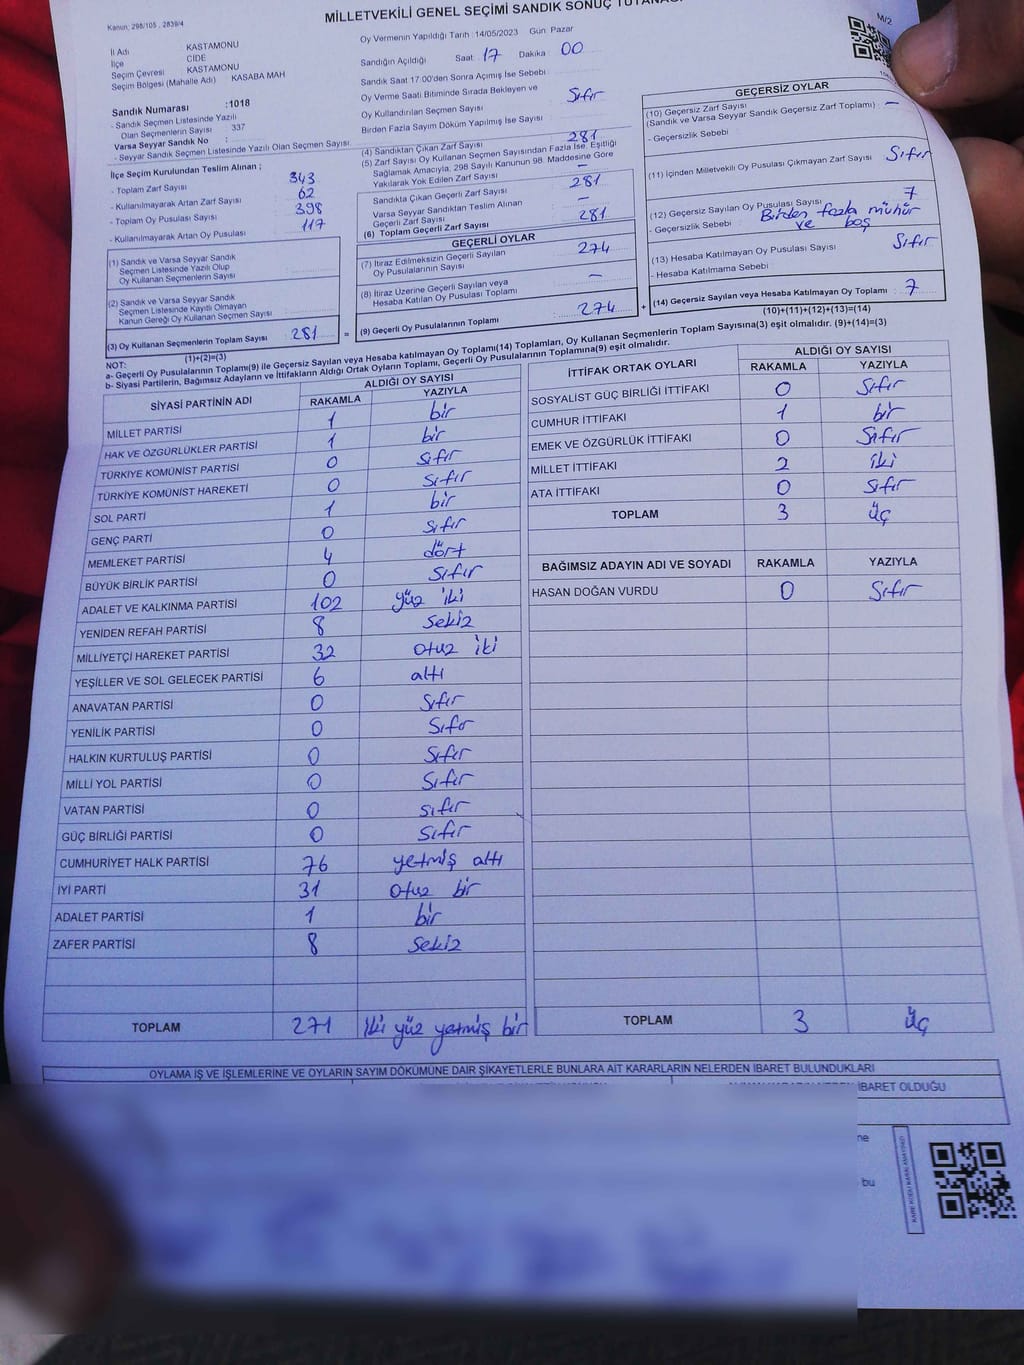 Kanun: 298/105 , 2839/4
MİLLETVEKİLİ GENEL SEÇİMİ SANDIK SONUÇ TUTANAĞI
M/2
İl Adı KASTAMONU
İlçe CİDE
Seçim Çevresi KASTAMONU
Seçim Bölgesi (Mahalle Adı) KASABA MAH
Sandık Numarası :1018
- Sandık Seçmen Listesinde Yazılı
Olan Seçmenlerin Sayısı : 337
Varsa Seyyar Sandık No :
- Seyyar Sandık Seçmen Listesinde Yazılı Olan Seçmen Sayısı:
İlçe Seçim Kurulundan Teslim Alınan ;
- Toplam Zarf Sayısı 343
- Kullanılmayarak Artan Zarf Sayısı 62
- Toplam Oy Pusulası Sayısı 398
- Kullanılmayarak Artan Oy Pusulası 117
(1) Sandık ve Varsa Seyyar Sandık
Seçmen Listesinde Yazılı Olup
Oy Kullanan Seçmenlerin Sayısı :
(2) Sandık ve Varsa Seyyar Sandık
Seçmen Listesinde Kayıtlı Olmayan
Kanun Gereği Oy Kullanan Seçmen Sayısı :
(3) Oy Kullanan Seçmenlerin Toplam Sayısı : 281 =
(1)+(2)=(3)
Oy Vermenin Yapıldığı Tarih : 14/05/2023 Gün: Pazar
Sandığın Açıldığı Saat 17 Dakika : 00
Sandık Saat 17:00'den Sonra Açımış İse Sebebi :
Oy Verme Saati Bitiminde Sırada Bekleyen ve
Oy Kullandırılan Seçmen Sayısı : Sıfır
Birden Fazla Sayım Döküm Yapılmış İse Sayısı :
(4) Sandıktan Çıkan Zarf Sayısı : 281
(5) Zarf Sayısı Oy Kullanan Seçmen Sayısından Fazla İse, Eşitliği
Sağlamak Amacıyla, 298 Sayılı Kanunun 98. Maddesine Göre
Yakılarak Yok Edilen Zarf Sayısı : –
Sandıkta Çıkan Geçerli Zarf Sayısı 281
Varsa Seyyar Sandıktan Teslim Alınan
Geçerli Zarf Sayısı –
(6) Toplam Geçerli Zarf Sayısı 281
GEÇERLİ OYLAR
(7) İtiraz Edilmeksizin Geçerli Sayılan
Oy Pusulalarının Sayısı : 274
(8) İtiraz Üzerine Geçerli Sayılan veya
Hesaba Katılan Oy Pusulası Toplamı : –
(9) Geçerli Oy Pusulalarının Toplamı 274 +
GEÇERSİZ OYLAR
(10) Geçersiz Zarf Sayısı
(Sandık ve Varsa Seyyar Sandık Geçersiz Zarf Toplamı) : –
- Geçersizlik Sebebi :
(11) İçinden Milletvekili Oy Pusulası Çıkmayan Zarf Sayısı Sıfır
(12) Geçersiz Sayılan Oy Pusulası Sayısı 7
- Geçersizlik Sebebi : Birden fazla mühür
ve boş
(13) Hesaba Katılmayan Oy Pusulası Sayısı Sıfır
- Hesaba Katılmama Sebebi :
(14) Geçersiz Sayılan veya Hesaba Katılmayan Oy Toplamı : 7
(10)+(11)+(12)+(13)=(14)
NOT:
a- Geçerli Oy Pusulalarının Toplamı(9) ile Geçersiz Sayılan veya Hesaba katılmayan Oy Toplamı(14) Toplamları, Oy Kullanan Seçmenlerin Toplam Sayısına(3) eşit olmalıdır. (9)+(14)=(3)
b- Siyasi Partilerin, Bağımsız Adayların ve İttifakların Aldığı Ortak Oyların Toplamı, Geçerli Oy Pusulalarının Toplamına(9) eşit olmalıdır.
SİYASİ PARTİNİN ADI ALDIĞI OY SAYISI
RAKAMLA YAZIYLA
MİLLET PARTİSİ 1 bir
HAK VE ÖZGÜRLÜKLER PARTİSİ 1 bir
TÜRKİYE KOMÜNİST PARTİSİ 0 sıfır
TÜRKİYE KOMÜNİST HAREKETİ 0 sıfır
SOL PARTİ 1 bir
GENÇ PARTİ 0 sıfır
MEMLEKET PARTİSİ 4 dört
BÜYÜK BİRLİK PARTİSİ 0 sıfır
ADALET VE KALKINMA PARTİSİ 102 yüz iki
YENİDEN REFAH PARTİSİ 8 sekiz
MİLLİYETÇİ HAREKET PARTİSİ 32 otuz iki
YEŞİLLER VE SOL GELECEK PARTİSİ 6 altı
ANAVATAN PARTİSİ 0 sıfır
YENİLİK PARTİSİ 0 sıfır
HALKIN KURTULUŞ PARTİSİ 0 sıfır
MİLLİ YOL PARTİSİ 0 sıfır
VATAN PARTİSİ 0 sıfır
GÜÇ BİRLİĞİ PARTİSİ 0 sıfır
CUMHURİYET HALK PARTİSİ 76 yetmiş altı
İYİ PARTİ 31 otuz bir
ADALET PARTİSİ 1 bir
ZAFER PARTİSİ 8 sekiz
TOPLAM 271 iki yüz yetmiş bir
İTTİFAK ORTAK OYLARI ALDIĞI OY SAYISI
RAKAMLA YAZIYLA
SOSYALİST GÜÇ BİRLİĞİ İTTİFAKI 0 Sıfır
CUMHUR İTTİFAKI 1 bir
EMEK VE ÖZGÜRLÜK İTTİFAKI 0 Sıfır
MİLLET İTTİFAKI 2 iki
ATA İTTİFAKI 0 Sıfır
TOPLAM 3 üç
BAĞIMSIZ ADAYIN ADI VE SOYADI RAKAMLA YAZIYLA
HASAN DOĞAN VURDU 0 Sıfır
TOPLAM 3 üç
OYLAMA İŞ VE İŞLEMLERİNE VE OYLARIN SAYIM DÖKÜMÜNE DAİR ŞİKAYETLERLE BUNLARA AİT KARARLARIN NELERDEN İBARET BULUNDUKLARI
İBARET OLDUĞU
ne
bu